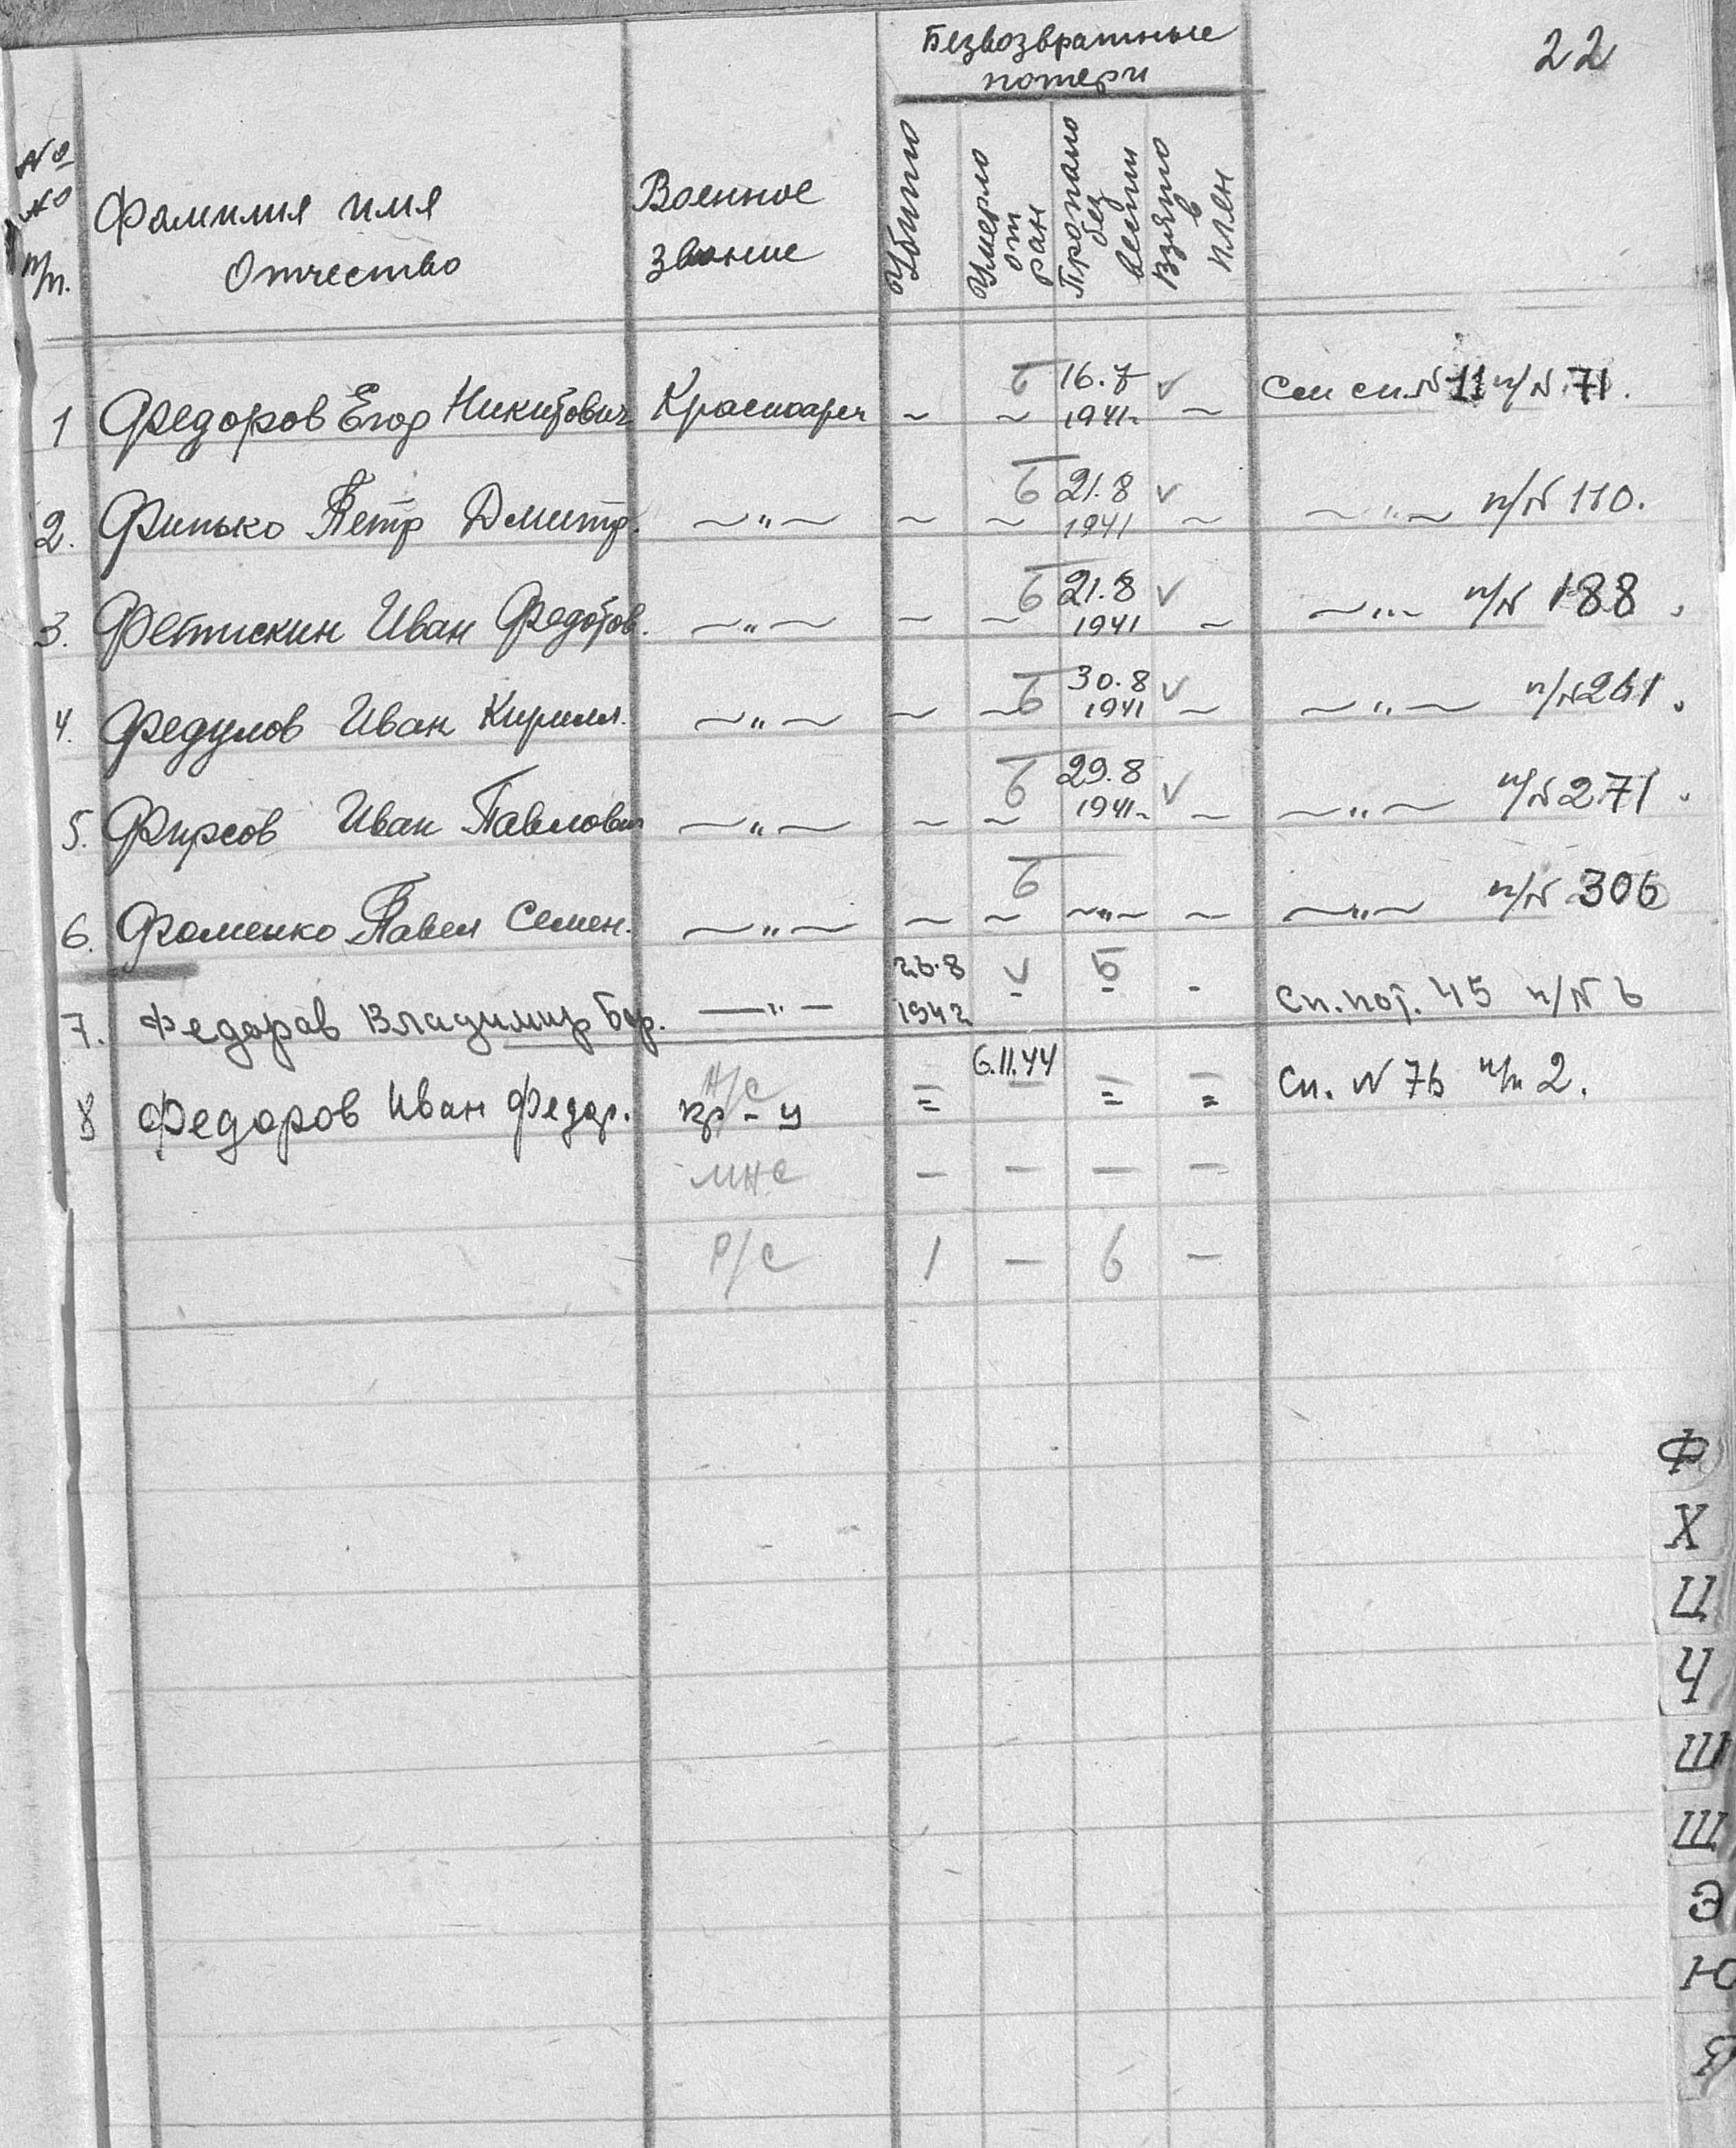 22
Безвозвратные
потери
№
№
п/п.
Фамилия имя
Отчество
Военное
звание
Убито
Умерло
от
ран
Пропало
без
вести
Взято
в
плен
1 Федоров Егор Никитович Красноарм ~ ~ Б 16.7 1941г. ✓ ~ См сп.№11 п/№ 71.
2. Финько Петр Дмитр. ~"~ ~ ~ Б 21.8 1941 ✓ ~ ~"~ п/№ 110.
3. Фетискин Иван Федотов. ~"~ ~ ~ Б 21.8 1941 ✓ ~ ~"~ п/№ 188.
4. Федулов Иван Кирилл. ~"~ ~ ~ Б 30.8 1941 ✓ ~ ~"~ п/№261.
5. Фирсов Иван Павлович ~"~ ~ ~ Б 29.8 1941г ✓ ~ ~"~ п/№271.
6. Фоменко Павел Семен. ~"~ ~ ~ Б ~"~ ~ ~"~ п/№ 306
7. Федоров Владимир Бор. —"— 26.8 1942 ✓ - Б - - Сп.пот. 45 п/№ 6
8 Федоров Иван Федор. Н/С кр-ц = 6.11.44 — = = Сп. №76 п/п 2.
МНС — — — —
Р/С 1 — 6 —
Ф
Х
Ц
Ч
Ш
Щ
Э
Ю
Я